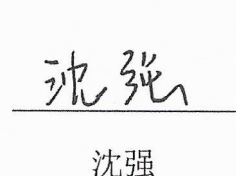 沈强
沈强